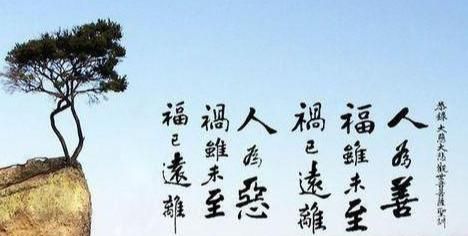 恭錄 大慈大悲觀世音菩薩聖訓
人為善
福雖未至
禍已遠離
人為惡
禍雖未至
福已遠離